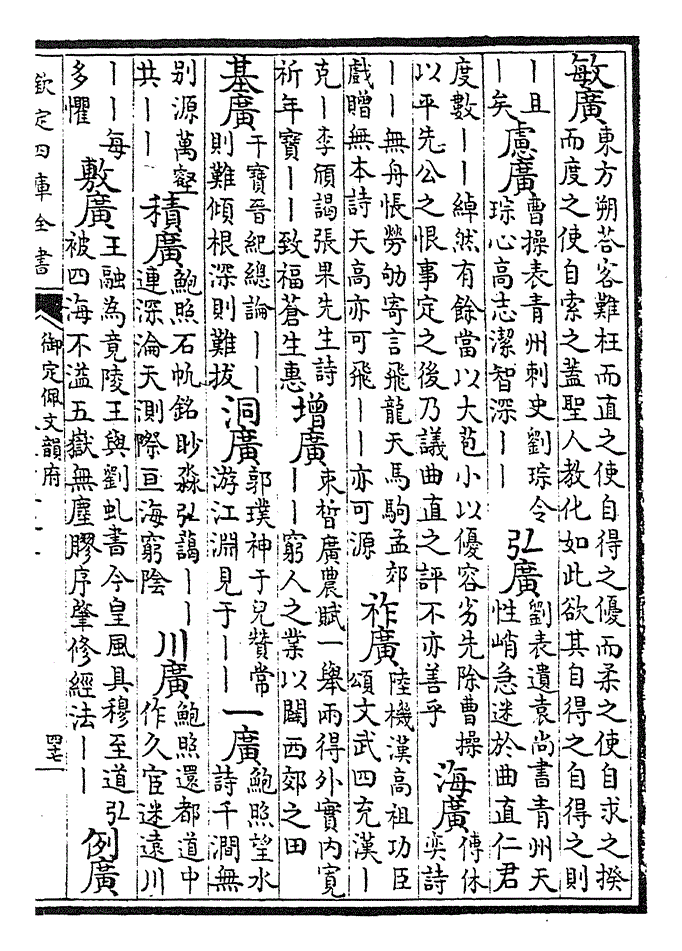 敏廣東方朔荅客難枉而直之使自得之優而柔之使自求之揆而度之使自索之蓋聖人教化如此欲其自得之自得之則
丨且丨矣 慮廣曹操表青州刺史劉琮令琮心高志潔智深丨丨 弘廣劉表遺袁尚書青州天性峭急迷於曲直仁君
度數丨丨綽然有餘當以大苞小以優容劣先除曹操以平先公之恨事定之後乃議曲直之評不亦善乎 海廣傅休奕詩
丨丨無舟悵勞劬寄言飛龍天馬駒孟郊戲贈無本詩天高亦可飛丨丨亦可源 祚廣陸機漢高祖功臣頌文武四充漢丨
克丨李頎謁張果先生詩祈年寶丨丨致福蒼生惠 增廣束晳廣農賦一舉兩得外實内寛丨丨窮人之業以闢西郊之田
基廣干寶晉紀總論丨丨則難傾根深則難拔 洞廣郭璞神于兒贊常游江淵見于丨丨 一廣鮑照望水詩千澗無
别源萬壑共丨丨 積廣鮑照石帆銘眇淼弘藹丨丨連深淪天測際亘海窮陰 川廣鮑照還都道中作久宦迷遠川
丨丨每多懼 敷廣王融為竟陵王與劉虬書今皇風具穆至道弘被四海不溢五嶽無塵膠序肇修經法丨丨 例廣
欽定四庫全書
御定佩文韻府
四十七